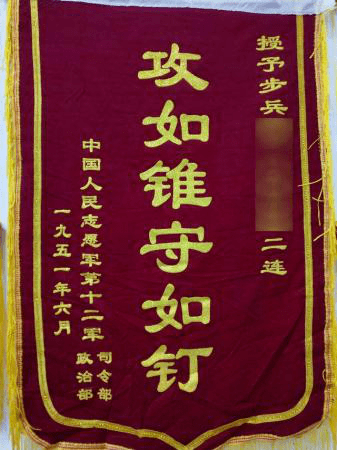 授予步兵
二连
攻如锥守如钉
中国人民志愿军第十二军
司令部
政治部
一九五一年六月